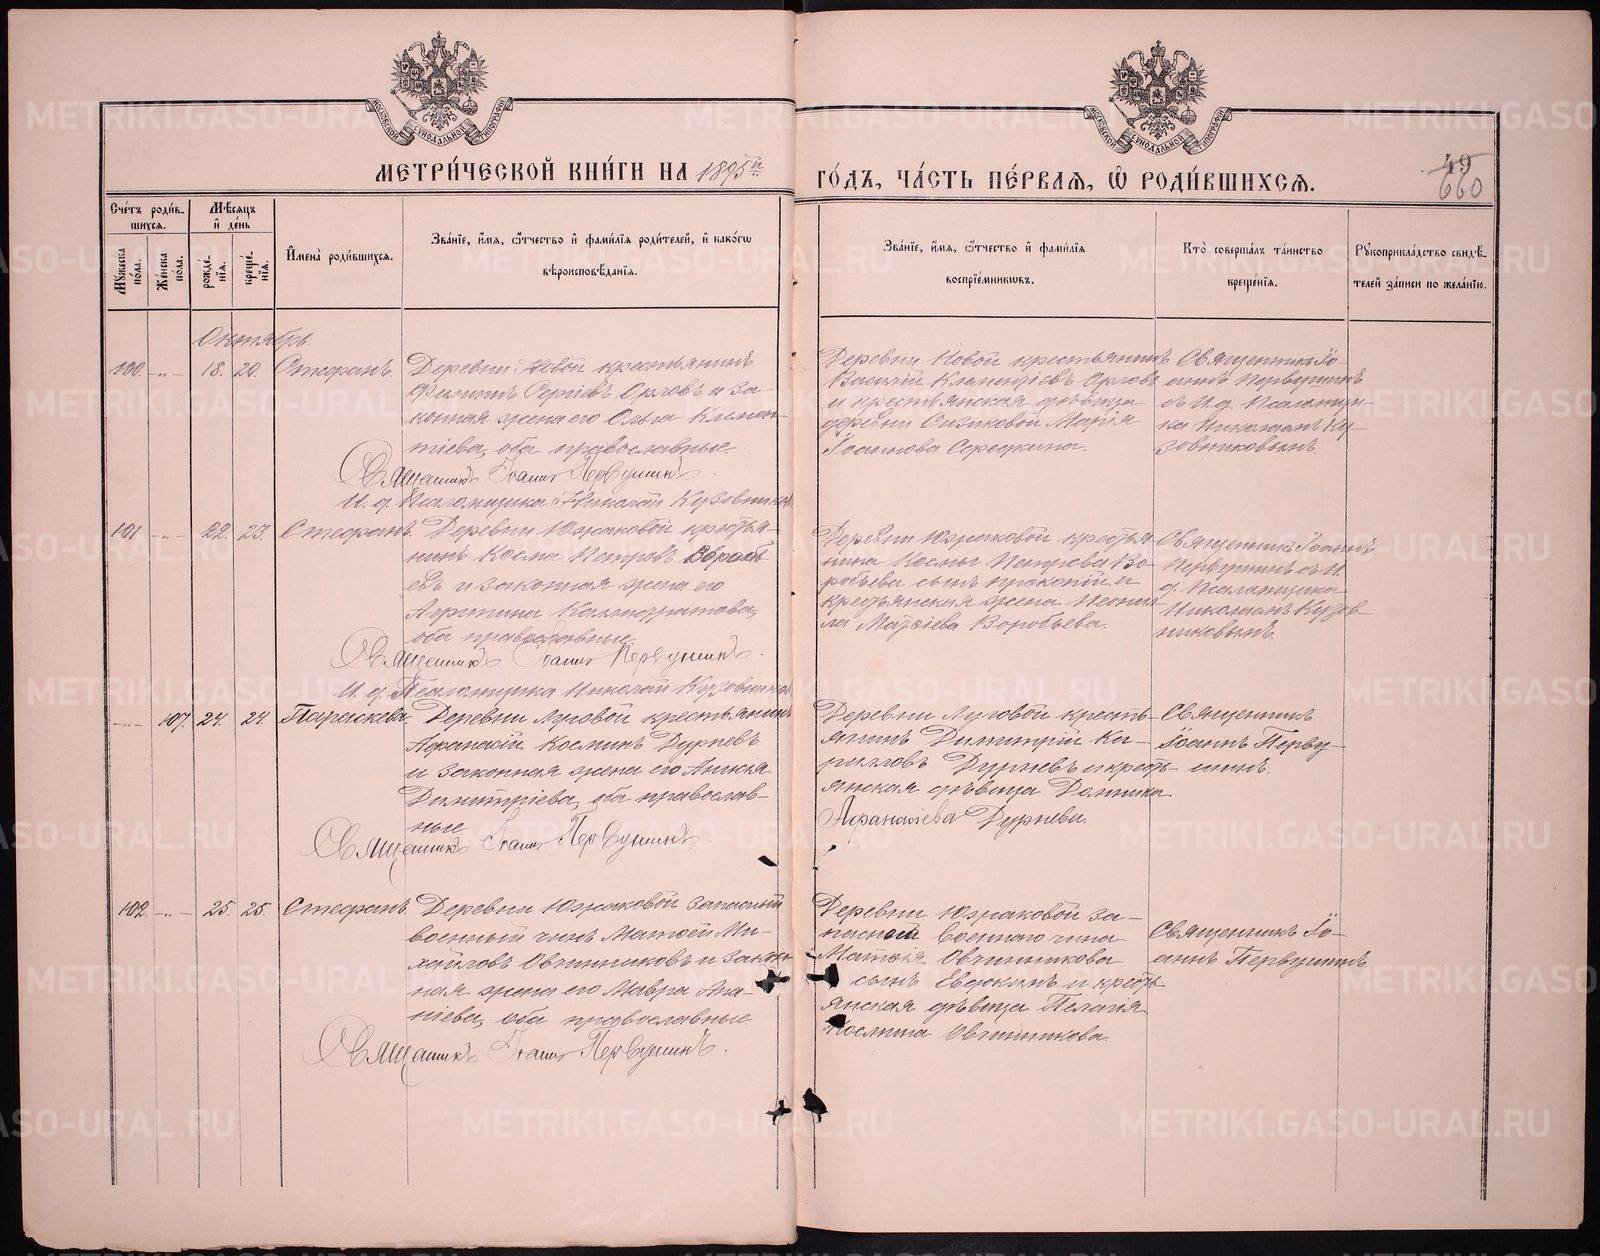 МЕТРИ́ЧЕСКОЙ КНИ́ГИ НА 1895й
ГО́ДЪ, ЧА́СТЬ ПЕ́РВАЯ, Ѿ РОДИ́ВШИХСЯ.
49
660
Сче́тъ роди́в-
шихся.
Мѣ́сяцъ
и҆ де́нь
Му́жеска
по́ла.
Же́нска
по́ла.
рожде́-
нія.
креще́-
нія.
И҆мена̀ роди́вшихся.
Зва́ніе, и҆́мя, ѻ҆́тчество и҆ фами́лія роди́телей, и҆ како́гѡ
вѣроисповѣ́данія.
Зва́ніе, и҆́мя, ѻ҆́тчество и҆ фами́лія
воспріе́мникѡвъ.
Кто̀ соверша́лъ та́инство
креще́нія.
Рукоприкла́дство свидѣ́-
телей за́писи по жела́нію.
Октябрь.
100. -„- 18. 20. Стефанъ.
Деревни Новой крестьянинъ
Филиппъ Сергіевъ Орловъ и за-
конная жена его Ольга Климен-
тіева, оба православные.
Священникъ Іоаннъ Первушинъ
И. д. Псаломщика Николай Кузовников
Деревни Новой крестьянинъ
Василій Климентіевъ Орловъ
и крестьянская дѣвица
деревни Сизиковой Марія
Іоаннова Середкина.
Священникъ Іо-
аннъ Первушинъ
съ И. д. Псаломщи-
ка Николаемъ Ку-
зовниковымъ.
101 -„- 22. 23. Стефанъ.
Деревни Южаковой крестья-
нинъ Косма Петровъ Вороб-
евъ и законная жена его
Агриппина Каллистратова,
оба православные.
Священникъ Іоаннъ Первушинъ.
И. д. Псаломщика Николай Кузовников
Деревни Южаковой крестья-
нина Космы Петрова Во-
робьева сынъ Прокопій и
крестьянская жена Неони-
ла Матѳіева Воробьева.
Священникъ Іоаннъ
Первушинъ съ И.
д. Псаломщика
Николаемъ Кузов-
никовымъ.
-„- 107. 24. 24. Параскева.
Деревни Луговой крестьянинъ
Афанасій Косминъ Дурневъ
и законная жена его Анисія
Димитріева, оба православ-
ные
Священникъ Іоаннъ Первушинъ.
Деревни Луговой кресть-
янинъ Димитрій Ки-
рилловъ Дурневъ и кресть-
янская дѣвица Домника
Афанасіева Дурнева.
Священникъ
Іоаннъ Перву-
шинъ.
102. -„- 25. 25. Стефанъ.
Деревни Южаковой запасный
военный чинъ Матѳей Ми-
хайловъ Овчинниковъ и закон-
ная жена его Мавра Ана-
ніева, оба православные
Священникъ Іоаннъ Первушинъ.
Деревни Южаковой за-
паснаго военнаго чина
Матѳія Овчинникова
сынъ Евдокимъ и кресть-
янская дѣвица Пелагія
Космина Овчинникова.
Священникъ Іо-
аннъ Первушинъ.
METRIKI.GASO-URAL.RU